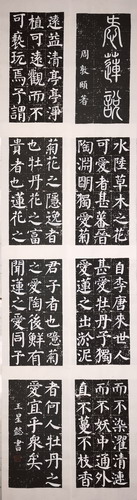 愛蓮說
周敦頤著
水陸草木之花
可愛者甚蕃晉
陶淵明獨愛菊
自李唐來世人
甚愛牡丹予獨
愛蓮之出於泥
而不染濯清漣
而不妖中通外
直不蔓不枝香
遠益清亭亭淨
植可遠觀而不
可褻玩焉予謂
菊花之隱逸者
也牡丹花之富
貴者也蓮花之
君子者也噫菊
之愛陶後鮮有
聞蓮之愛同予
者何人牡丹之
愛宜乎衆矣
王星懿書